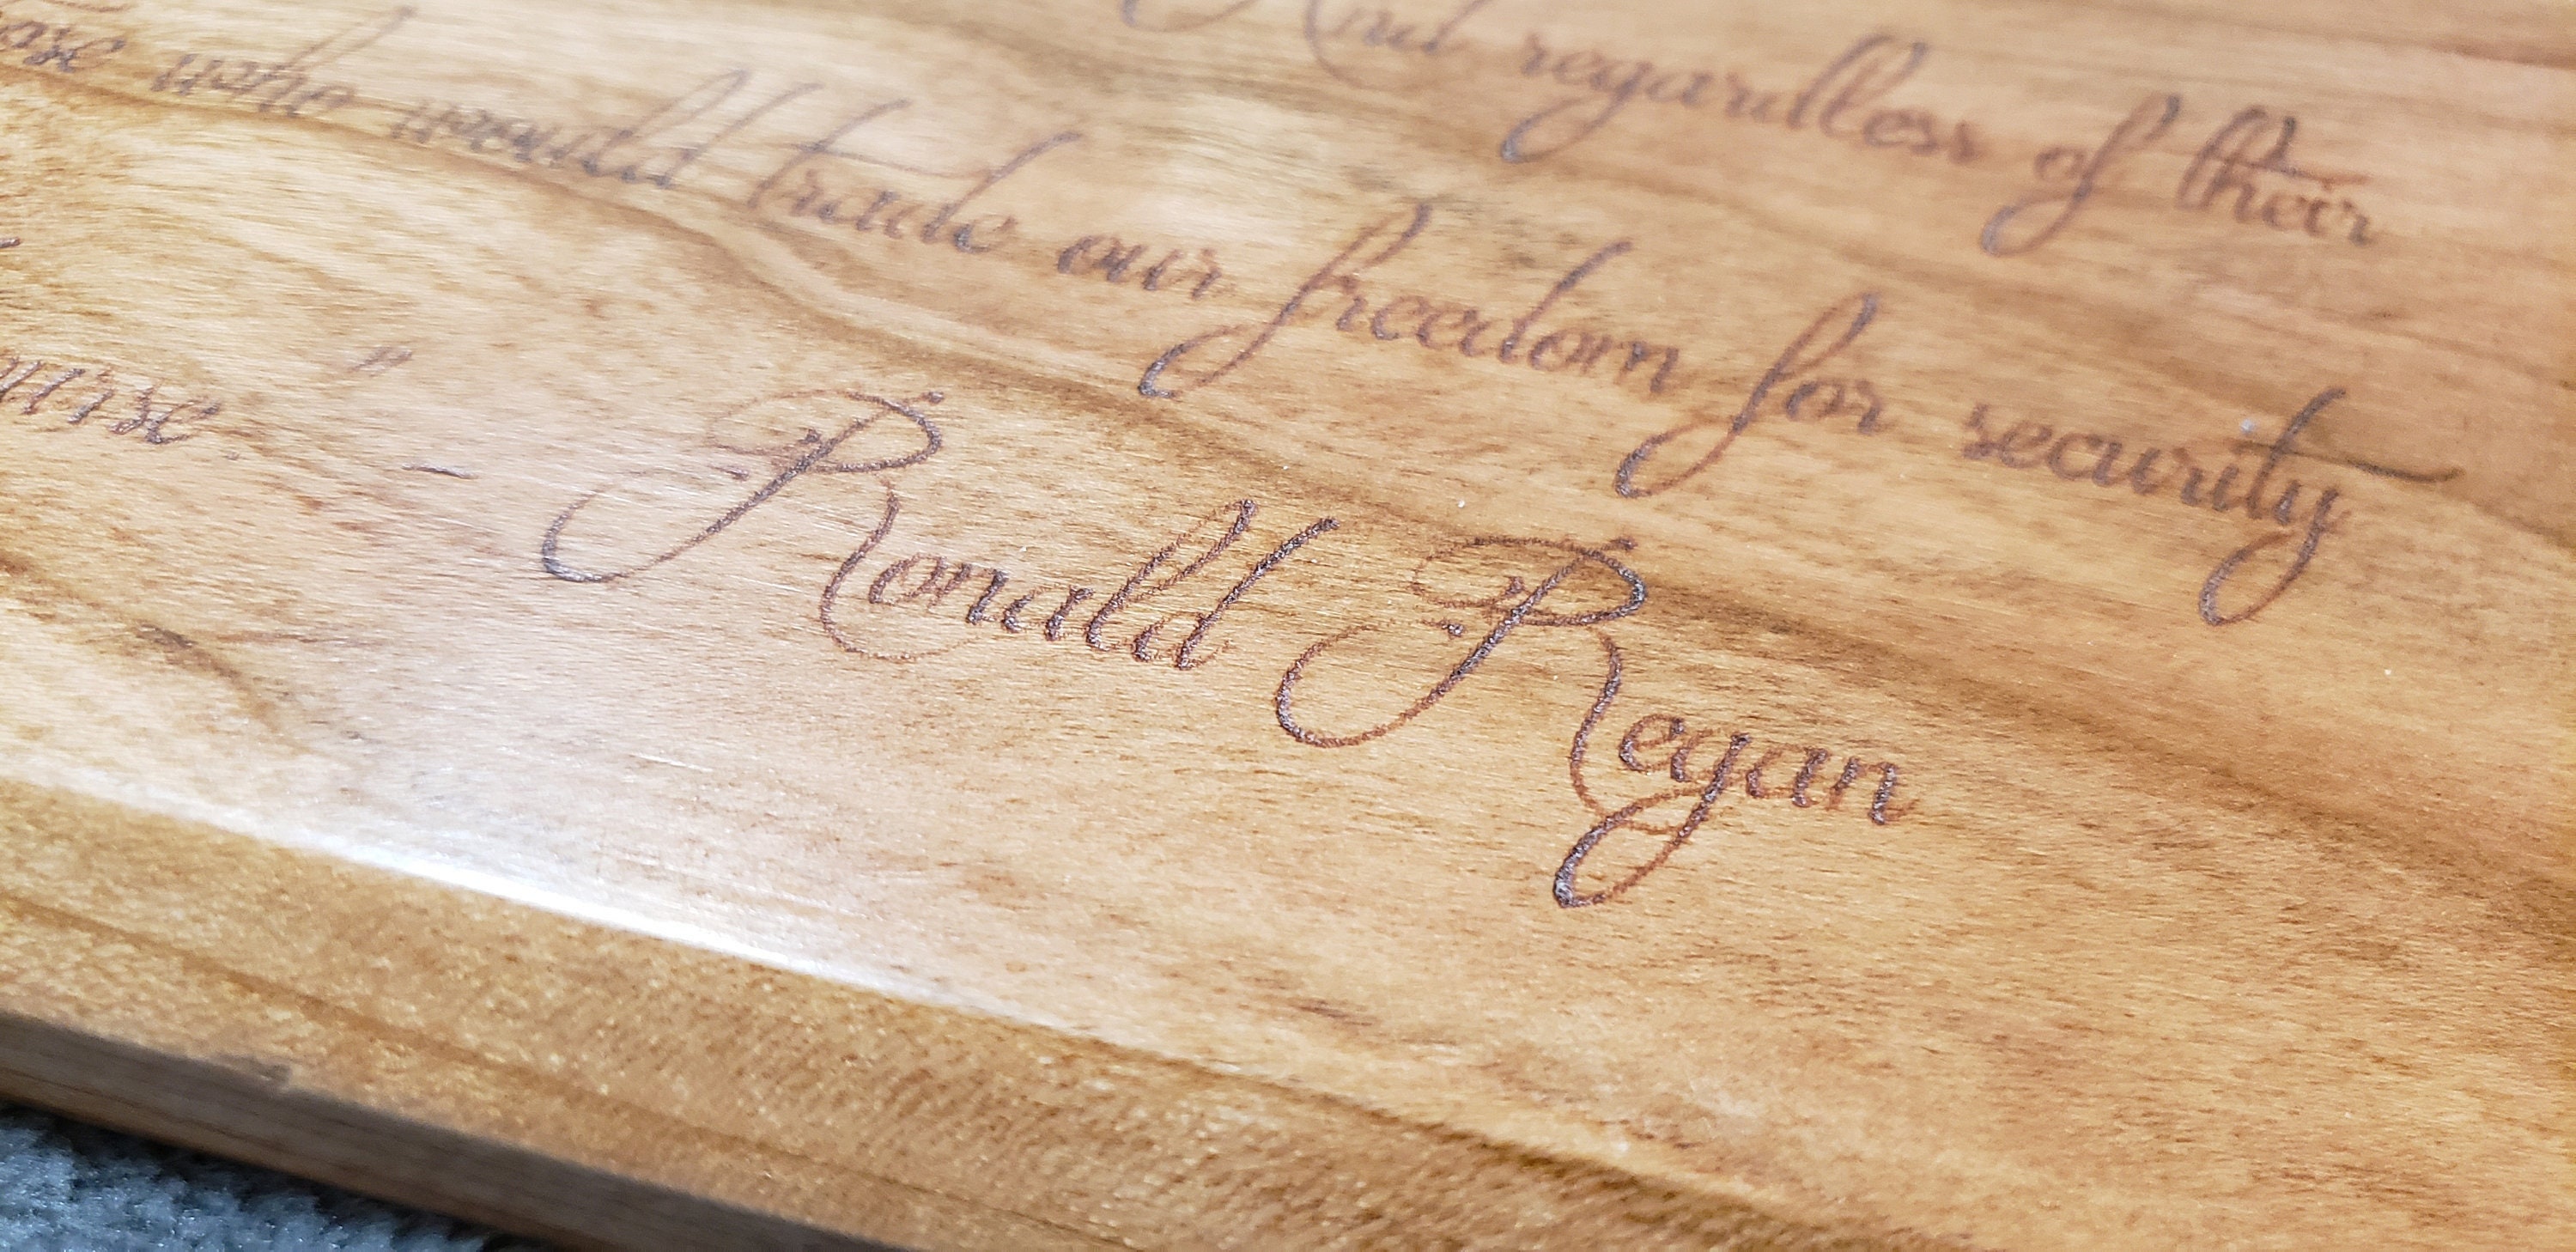 And regardless of their
those who would trade our freedom for security
course." - Ronald Regan